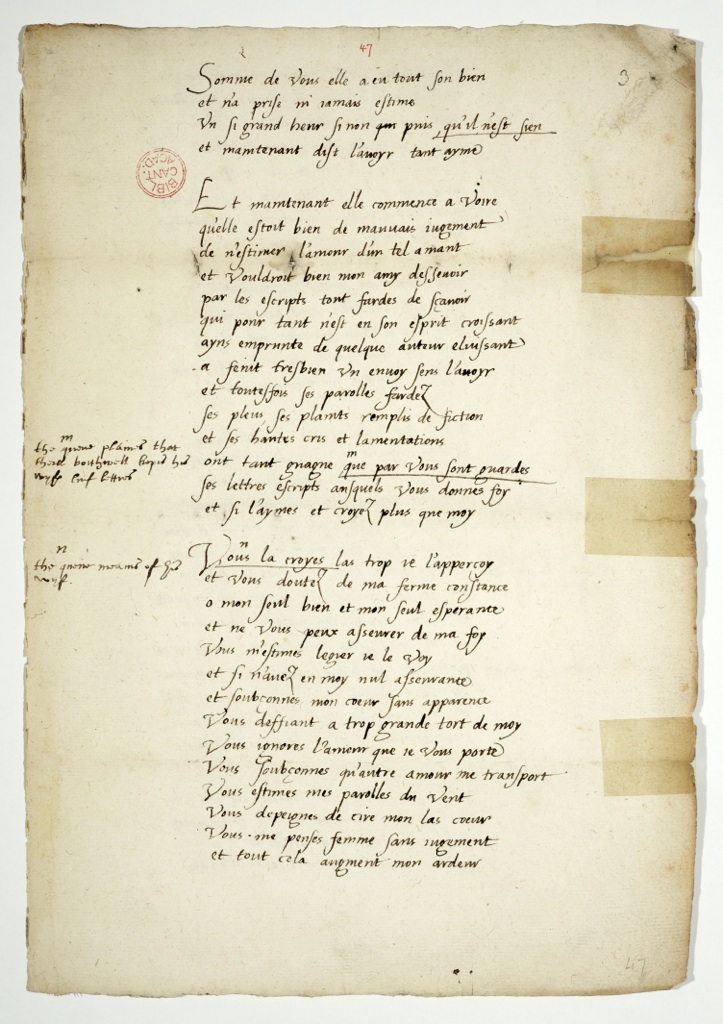 47
3
Somme de vous elle a eu tout son bien
et n'a prise ni iamais estime
Un si grand heur si non puis qu'il n'est sien
et maintenant dist l'avoyr tant ayme
BIBL. CANT. ACAD.
Et maintenant elle commence a Voire
qu'elle estoit bien de mauvais iugement
de n'estimer l'amour d'un tel amant
et vouldroit bien mon amy dessevoir
par les escripts tout fardes de scavoir
qui pour tant n'est en son esprit croissant
ayns emprunte de quelque auteur eluissant
a fenit tresbien Un envoy sens l'avoyr
et toutesfois ses parolles fardez
ses pleus ses plaints remplis de fiction
et ses hautes cris et lamentations
m
the quene plaines that
therll bouthwell kepis his
wyfs luf lettres
m
ont tant guagne que par Vous sont guardes
ses lettres escripts ausquels Vous donnes foy
et si l'aymes et croyez plus que moy
n
the quene means of his
wyf.
n
Vous la croyes las trop ie l'apperçoy
et vous doutez de ma ferme constance
o mon seul bien et mon seul esperance
et ne Vous peux asseurer de ma foy
Vous m'estimes legier ie le Voy
et si n'avez en moy nul asseurance
et soubçonnes mon coeur sans apparence
Vous deffiant a trop grande tort de moy
Vous ignores l'amour que ie Vous porte
Vous soubçonnes qu'autre amour me transport
Vous estimes mes parolles du Vent
Vous depeignes de cire mon las coeur
Vous me penses femme sans iugement
et tout cela augment mon ardeur
47